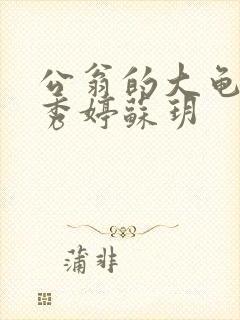 公翁的大龟
秀婷蘇玥
蒲非